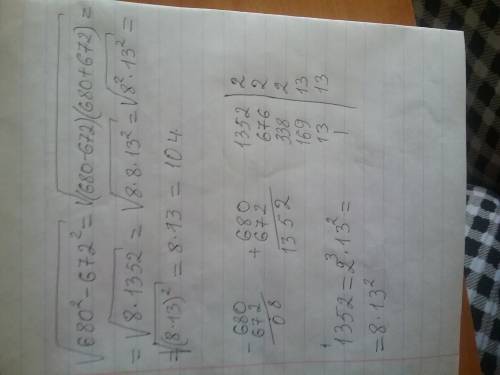 √680² - 672² = √(680-672)(680+672) =
= √8·1352 = √8·8·13² = √8²·13² =
= √(8·13)² = 8·13 = 104
- 680
672
08
+ 680
672
1352
1352 | 2
676 | 2
338 | 2
169 | 13
13 | 13
1
1352 = 2³·13² =
= 8·13²